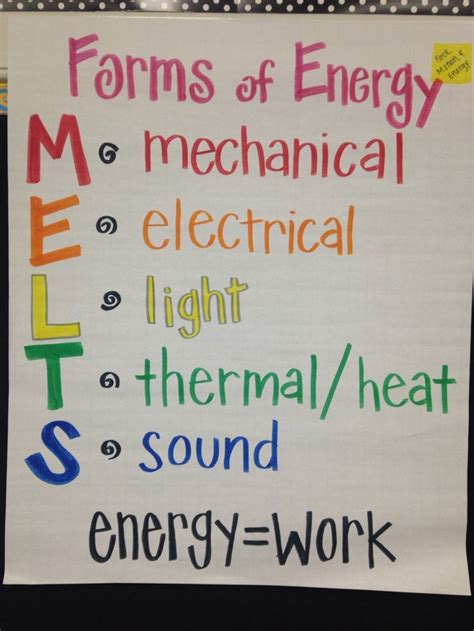 Forms of Energy
Force
Motion &
Energy
M mechanical
E electrical
L light
T thermal/heat
S sound
energy=work